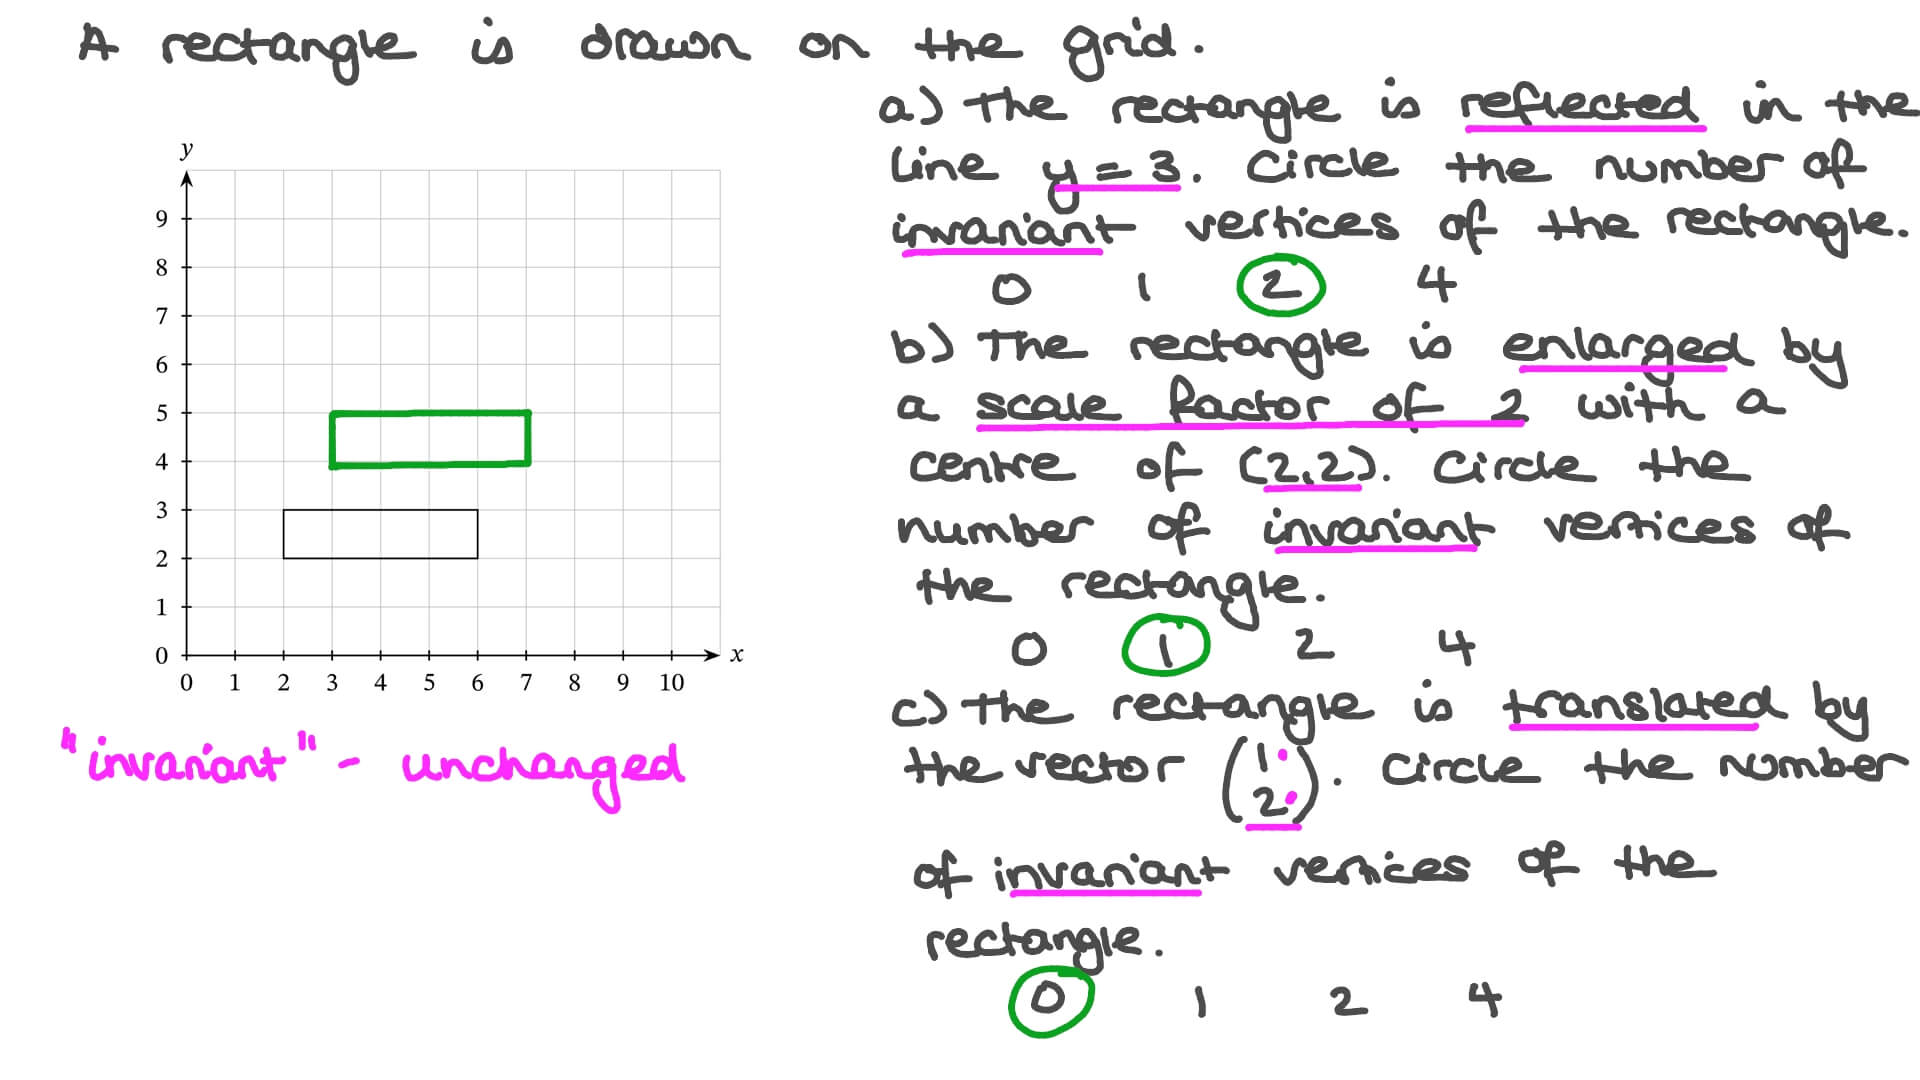 A rectangle is drawn on the grid.
a) The rectangle is reflected in the
line y = 3. Circle the number of
invariant vertices of the rectangle.
0 1 2 4
b) The rectangle is enlarged by
a scale factor of 2 with a
centre of (2,2). Circle the
number of invariant vertices of
the rectangle.
0 1 2 4
c) The rectangle is translated by
the vector (1 2). Circle the number
of invariant vertices of the
rectangle.
0 1 2 4
y
9
8
7
6
5
4
3
2
1
0
x
0 1 2 3 4 5 6 7 8 9 10
"invariant" - unchanged